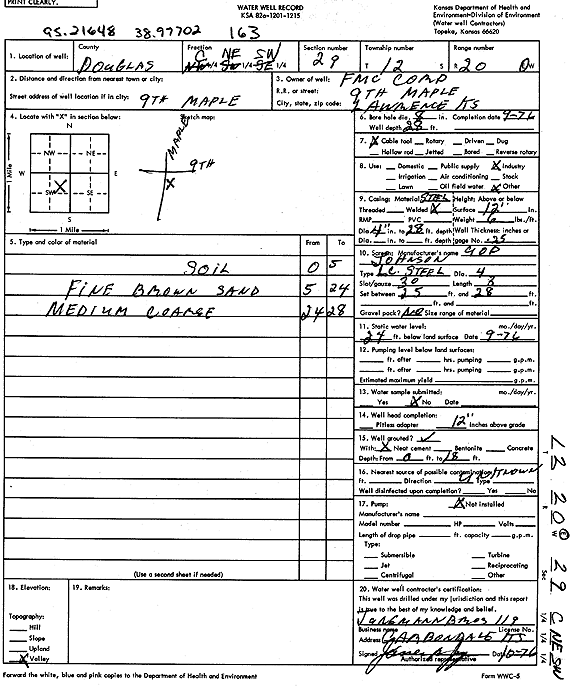 PRINT CLEARLY.
WATER WELL RECORD
KSA 82a-1201-1215
Kansas Department of Health and
Environment-Division of Environment
(Water well Contractors)
Topeka, Kansas 66620
95.21648 38.97702 163
1. Location of well: County DOUGLAS Fraction C NE SW 1/4 1/4 1/4 Section number 29 Township number T 12 S Range number R 20 W
2. Distance and direction from nearest town or city:
Street address of well location if in city: 9TH MAPLE
3. Owner of well: FMC CORP
R.R. or street: 9TH MAPLE
City, state, zip code: LAWRENCE KS
4. Locate with "X" in section below:
N
NW NE
W E
SW X SE
S
1 Mile
1 Mile
Sketch map:
MAPLE
9TH
X
6. Bore hole dia. 8 in. Completion date 9-76
Well depth 28 ft.
7. X Cable tool Rotary Driven Dug
Hollow rod Jetted Bored Reverse rotary
8. Use: Domestic Public supply X Industry
Irrigation Air conditioning Stock
Lawn Oil field water X Other
9. Casing: Material STEEL Height: Above or below
Threaded Welded X Surface 12" in.
RMP PVC Weight 6 lbs./ft.
Dia. 4" in. to 28 ft. depth Wall Thickness: inches or
Dia. in. to ft. depth gage No. .25
5. Type and color of material From To
SOIL 0 5
FINE BROWN SAND 5 24
MEDIUM COARSE 24 28
(Use a second sheet if needed)
10. Screen: Manufacturer's name UOP
JOHNSON
Type L.C. STEEL Dia. 4
Slot/gauze 30 Length 3
Set between 25 ft. and 28 ft.
ft. and ft.
Gravel pack? NO Size range of material
11. Static water level: mo./day/yr.
24 ft. below land surface Date 9-76
12. Pumping level below land surfaces:
ft. after hrs. pumping g.p.m.
ft. after hrs. pumping g.p.m.
Estimated maximum yield g.p.m.
13. Water sample submitted: mo./day/yr.
Yes X No Date
14. Well head completion:
Pitless adapter 12" Inches above grade
15. Well grouted? ✓
With: X Neat cement Bentonite Concrete
Depth: From 0 ft. to 18 ft.
16. Nearest source of possible contamination: UNKNOWN
ft. Direction Type
Well disinfected upon completion? Yes No
17. Pump: X Not installed
Manufacturer's name
Model number HP Volts
Length of drop pipe ft. capacity g.p.m.
Type:
Submersible Turbine
Jet Reciprocating
Centrifugal Other
18. Elevation:
Topography:
Hill
Slope
Upland
X Valley
19. Remarks:
20. Water well contractor's certification:
This well was drilled under my jurisdiction and this report
is true to the best of my knowledge and belief.
BROS 119
Business name License No.
Address CARBONDALE KS
Signed Date 10-76
Authorized representative
Forward the white, blue and pink copies to the Department of Health and Environment
Form WWC-5
T 12 R 20 E W Sec 29 C NE SW
1/4 1/4 1/4